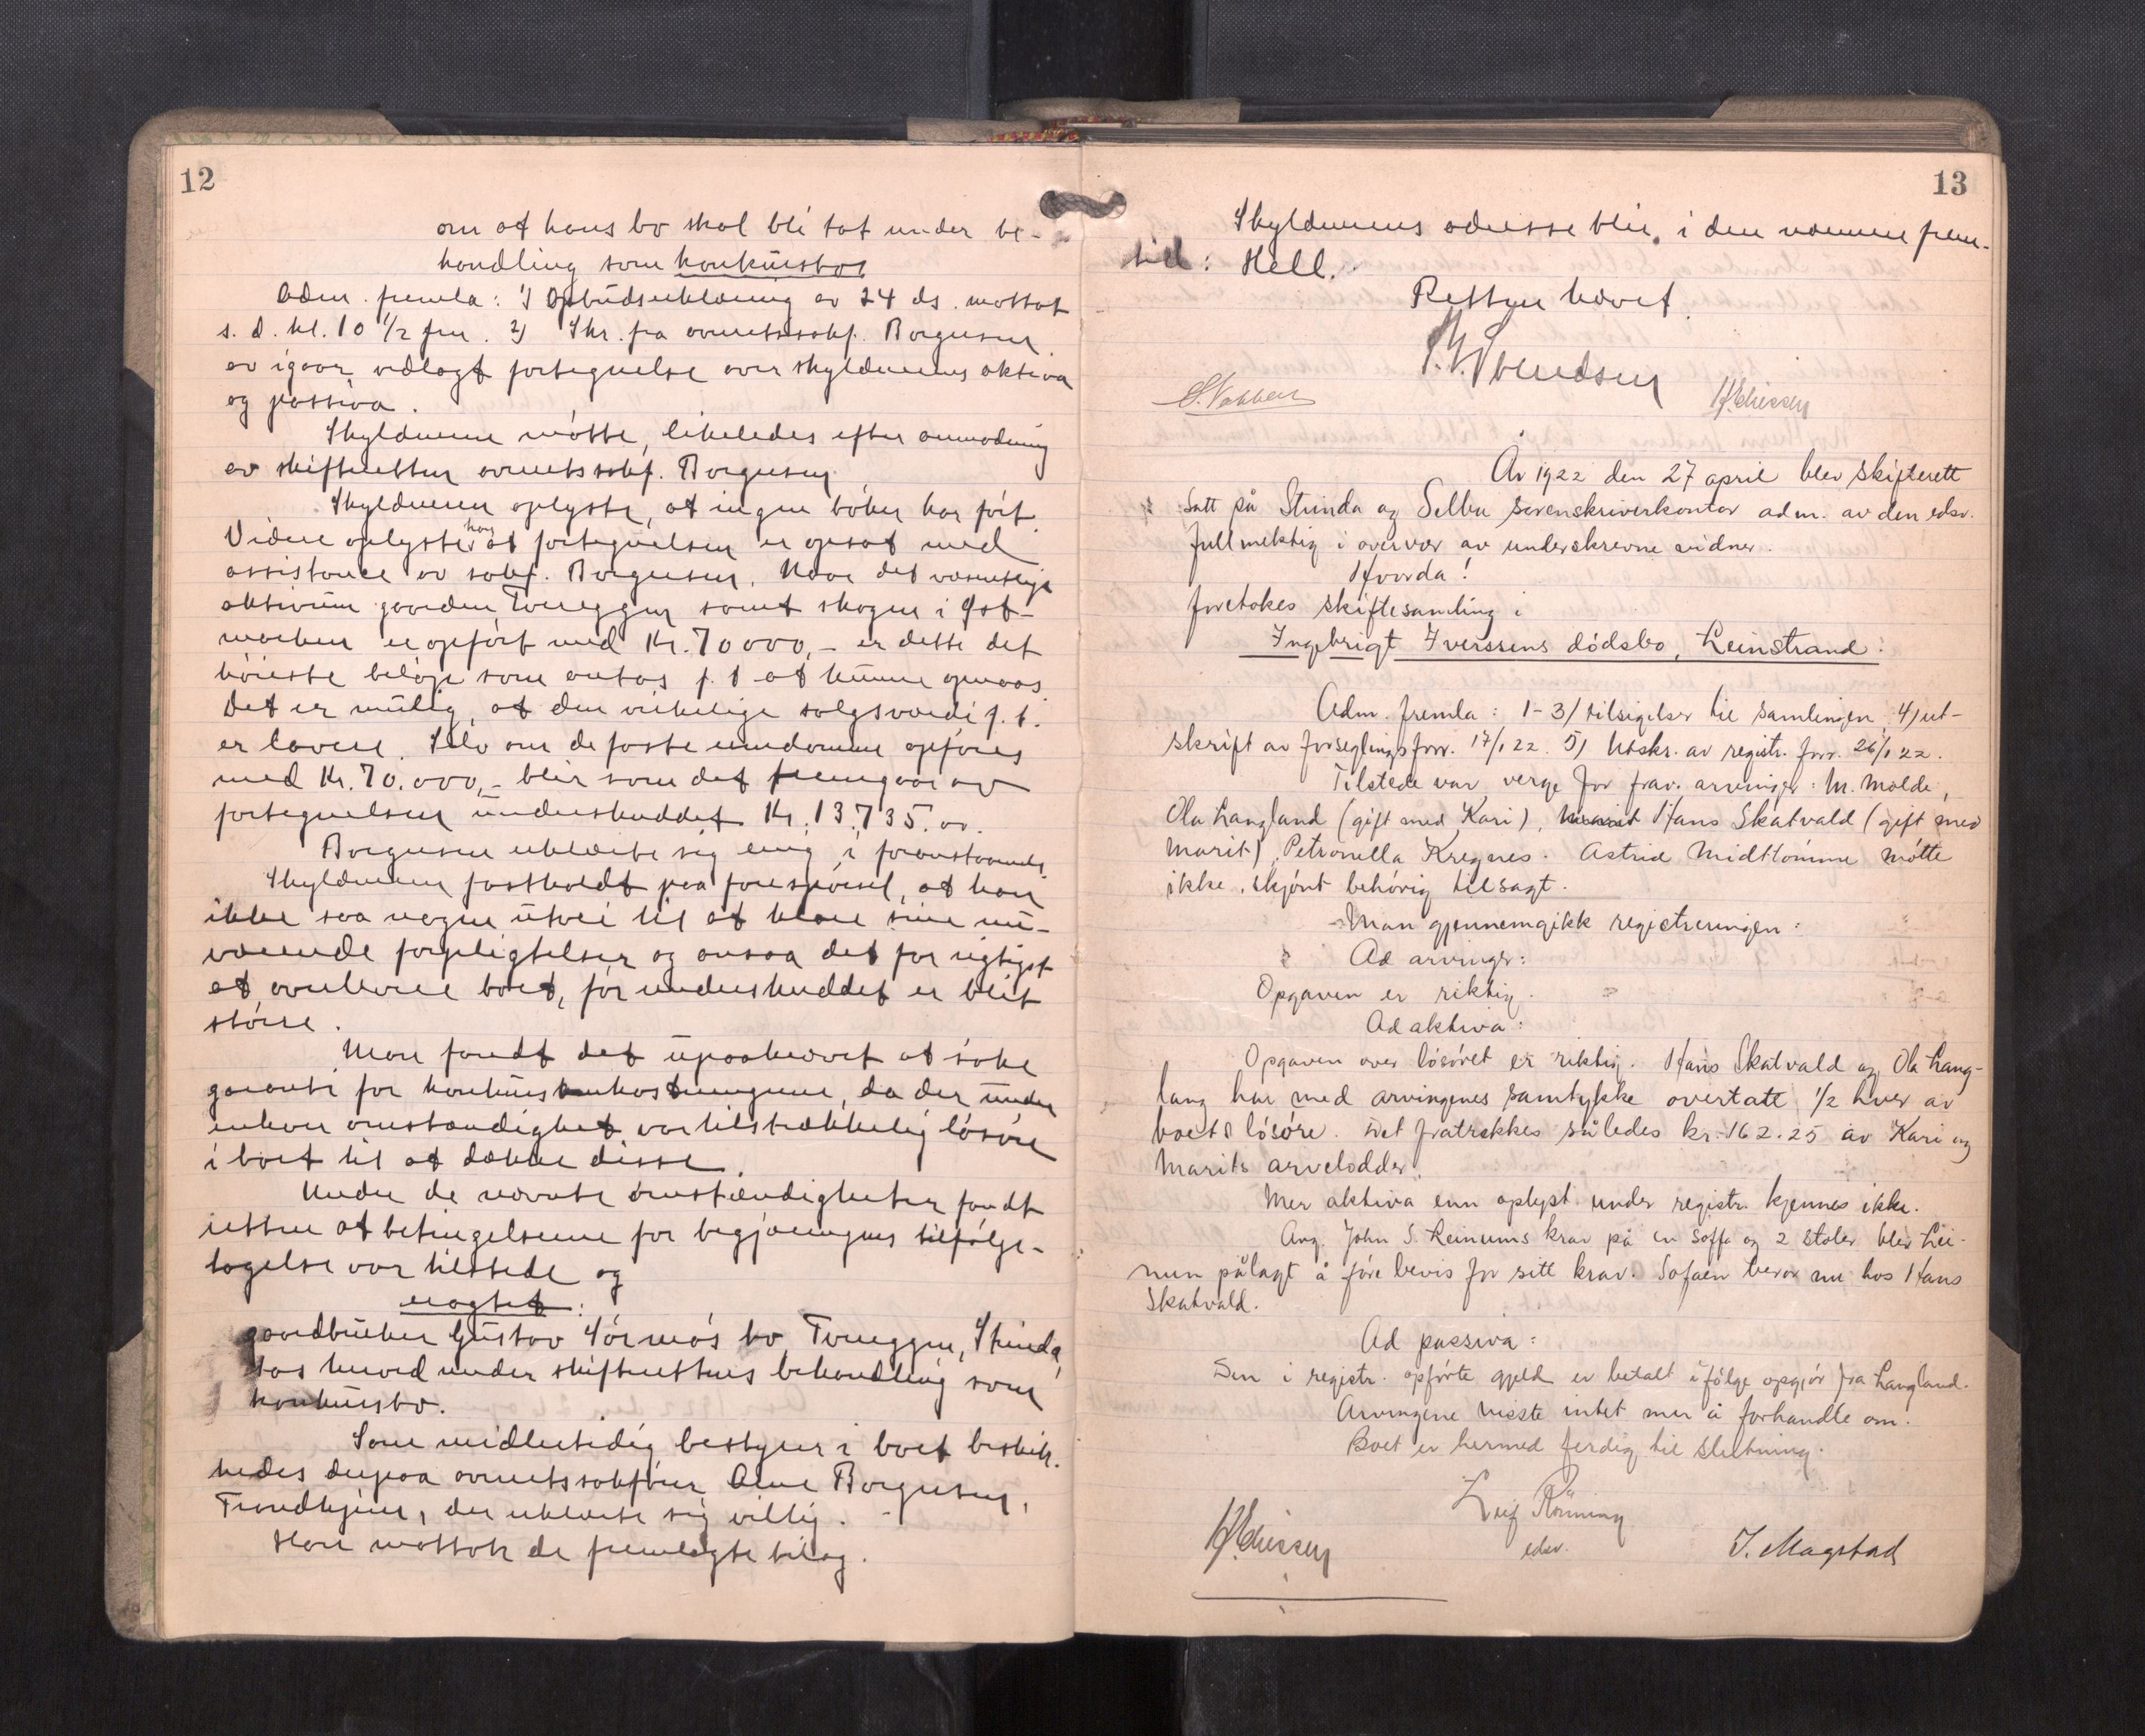 12
om at hans bo skal bli tat under be-
handling som konkursbo.
Adm. fremla: 1) Opbudserklæring av 24 ds. mottat
s. d. kl. 10 1/2 fm. 2) Skr. fra overretssakf. Borgersen
av igaar vedlagt fortegnelse over skyldnerens aktiva
og passiva.
Skyldneren møtte, likeledes efter anmodning
av skifteretten overretssakf. Borgersen.
Skyldneren oplyste, at ingen bøker har ført.
Videre oplyste han at fortegnelsen er opsat med
assistance av sakf. Borgersen. Naar det væsentlige
aktivum gaarden Tvereggen samt skogen i Øst-
marken er opført med Kr. 70000,- er dette det
høieste beløp som antas p. t. at kunne opnaas.
Det er mulig, at den virkelige salgsværdi p. t.
er lavere. Selv om de faste eiendomme opføres
med Kr. 70.000,- blir som det fremgaar av
fortegnelsen underskuddet Kr. 13.735.00.
Borgersen erklærte sig enig i foranstaaende.
Skyldneren fastholdt paa forespørsel, at han
ikke saa nogen utvei til at klare sine nu-
værende forpligtelser og ansaa det for rigtigst
at overlevere boet, før underskuddet er blit
større.
Man fandt det upaakrævet at søke
garanti for konkursomkostningene, da der under
enhver omstændighet var tilstrækkelig løsøre
i boet til at dække disse.
Under de nævnte omstændigheter fandt
retten at betingelsene for begjæringens tilfølge-
tagelse var tilstede og
eragtet:
gaardbruker Gustav Sørmos bo Tvereggen, Strinda,
tas herved under skifterettens behandling som
konkursbo.
Som midlertidig bestyrer i boet beskik-
kedes derpaa overretssakfører Arne Borgersen,
Trondhjem, der erklærte sig villig.
Han mottok de fremlagte bilag.
13
Skyldnerens adresse blir, i den nærmeste frem-
tid: Hell.
Retten hævet.
Svendsen
År 1922 den 27 april blev skifterett
satt på Strinda og Selbu sorenskriverkontor adm. av den edsv.
fullmektig i overvær av underskrevne vidner.
Hvorda!
foretokes skiftesamling i
Ingebrigt Iverssens dødsbo, Leinstrand:
Adm. fremla: 1-3/ tilsigelser til samlingen, 4/ ut-
skrift av forseglingsforr. 17/1 22. 5/ Utskr. av registr. forr. 26/1 22.
Tilstede var verge for frav. arvinger: M. Molde,
Ola Langland (gift med Kari), Marit Hans Skatvald (gift med
Marit), Petronella Kregnes. Astrid Midttømme møtte
ikke, skjønt behørig tilsagt.
Man gjennemgikk registreringen:
Ad arvinger:
Opgaven er riktig.
Ad aktiva:
Opgaven over løsøret er riktig. Hans Skatvald og Ola Lang-
lang har med arvingenes samtykke overtatt 1/2 hver av
boets løsøre. Det fratrekkes således kr. 162.25 av Kari og
Marits arvelodder.
Mer aktiva enn oplyst under registr. kjennes ikke.
Ang. John S. Leinums krav på en soffa og 2 stoler blev Lei-
num pålagt å føre bevis for sitt krav. Sofaen beror nu hos Hans
Skatvald.
Ad passiva:
Den i registr. opførte gjeld er betalt ifølge opgjør fra Langland.
Arvingene visste intet mer å forhandle om.
Boet er hermed ferdig til slutning.
Leif Rønning
edsv.
J. Magstad